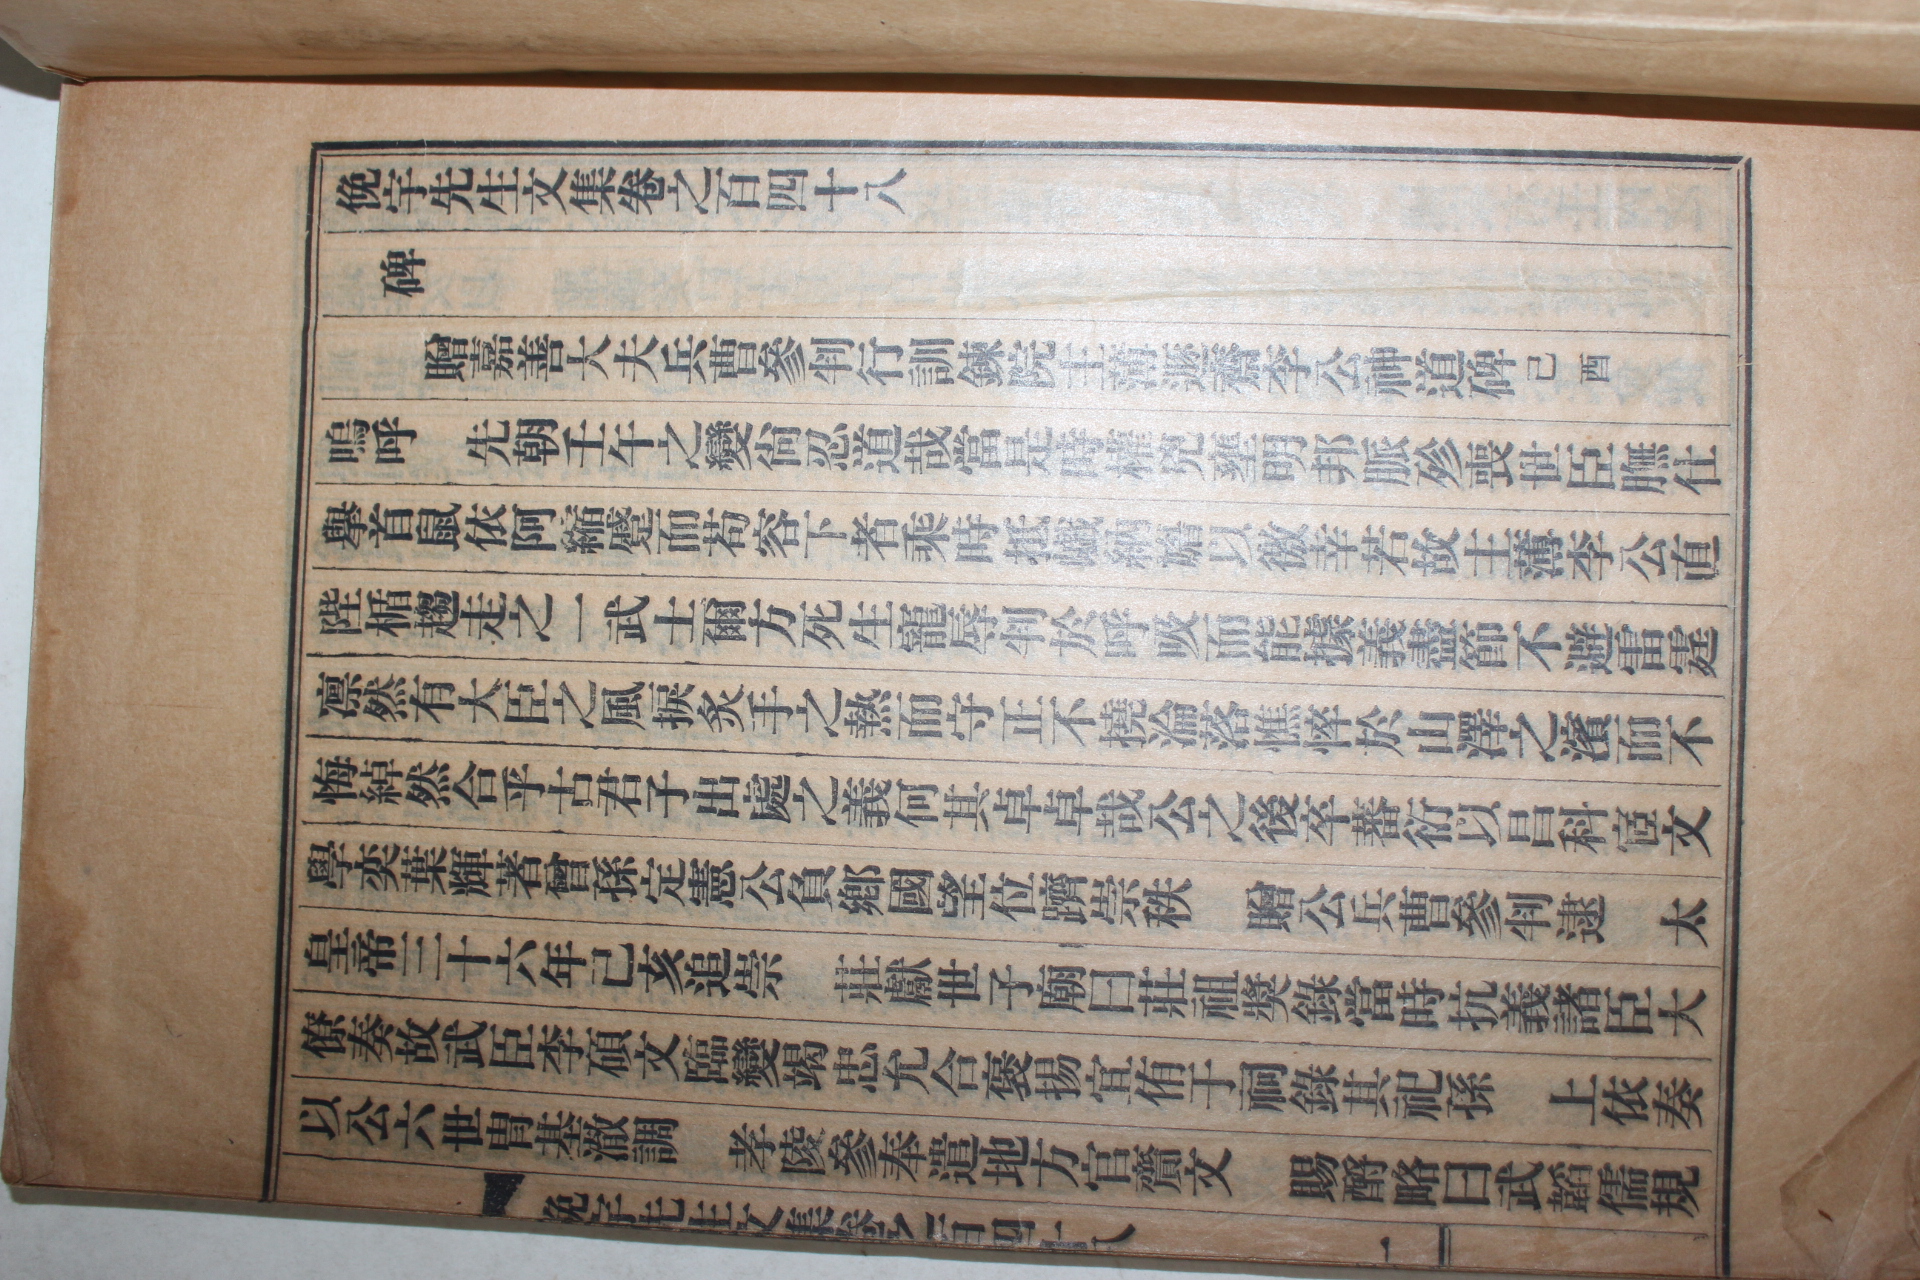 俛宇先生文集卷之百四十八
碑
贈嘉善大夫兵曹參判行訓鍊院主簿遯齋李公神道碑 己酉
嗚呼 先朝壬午之變尙忍道哉當是時權兇壅明邦脈殄喪世臣膴仕
擧首鼠依阿縮蹙而苟容下者乘時抵巇網 以徼幸若故主簿李公直
陛楯趨走之一武士爾方死生寵辱判於呼吸而能據義盡節不避雷霆
凛然有大臣之風捩炙手之熱而守正不撓淪落憔悴於山澤之濱而不
悔綽然合乎古君子出處之義何其卓卓哉公之後卒蕃衍以昌科宦文
學奕葉輝著曾孫定憲公負鄕國望位躋崇秩 贈公兵曹參判逮 太
皇帝三十六年己亥追崇 莊獻世子廟曰莊祖獎錄當時抗義諸臣大
僚奏故武臣李碩文臨變竭忠允合褒揚宜侑于祠錄其祀孫 上依奏
以公六世胄基澈調 孝陵參奉遣地方官齎文 賜酹略曰武韜儒規
俛宇先生文集卷之百四十八 一